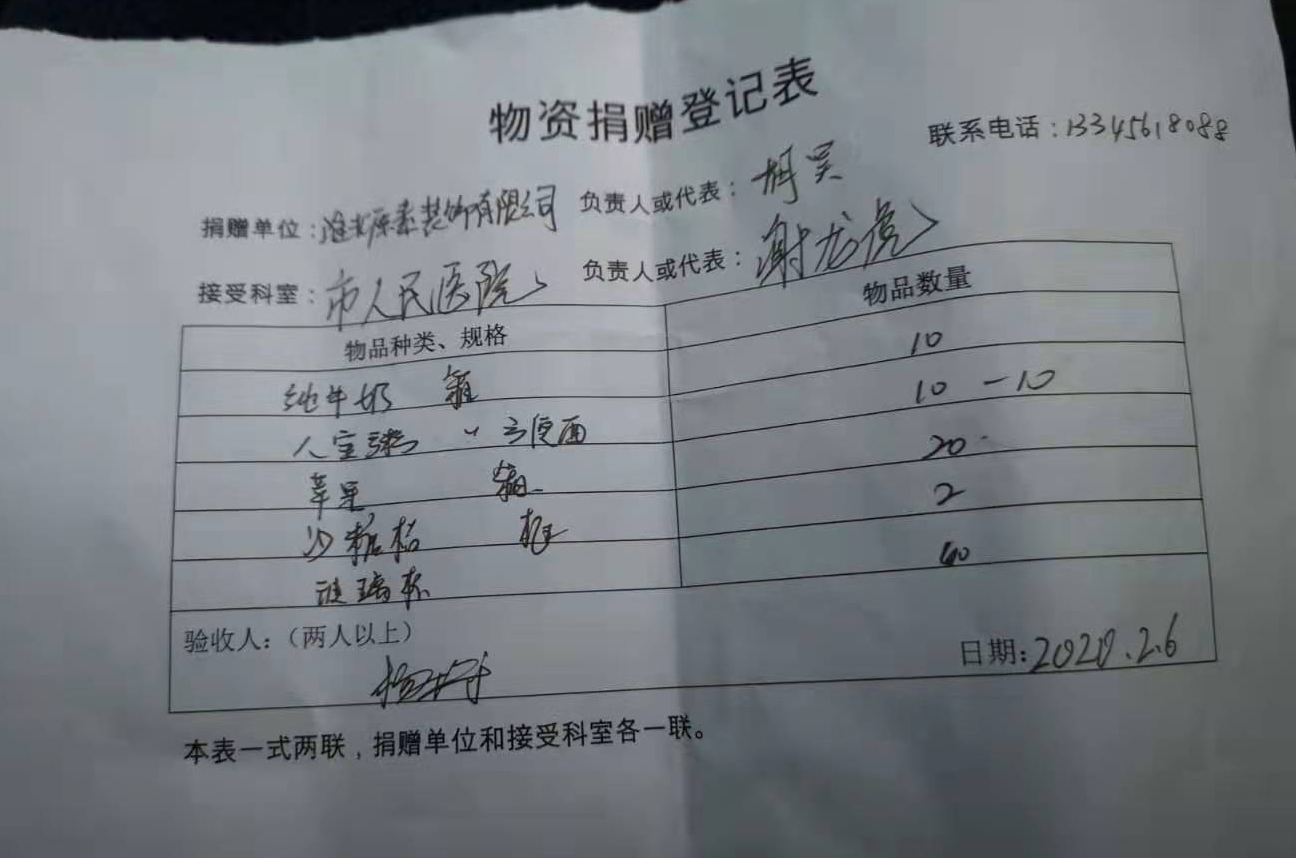 物资捐赠登记表
联系电话：13345618088
捐赠单位：淮北原素装饰有限公司 负责人或代表：胡昊
接受科室：市人民医院 负责人或代表：谢龙虎
物品种类、规格 物品数量
纯牛奶 箱 10
八宝粥 〃 方便面 10 －10
苹果 箱 20
沙糖桔 框 2
玻璃杯 40
验收人：（两人以上）
日期：2020.2.6
本表一式两联，捐赠单位和接受科室各一联。